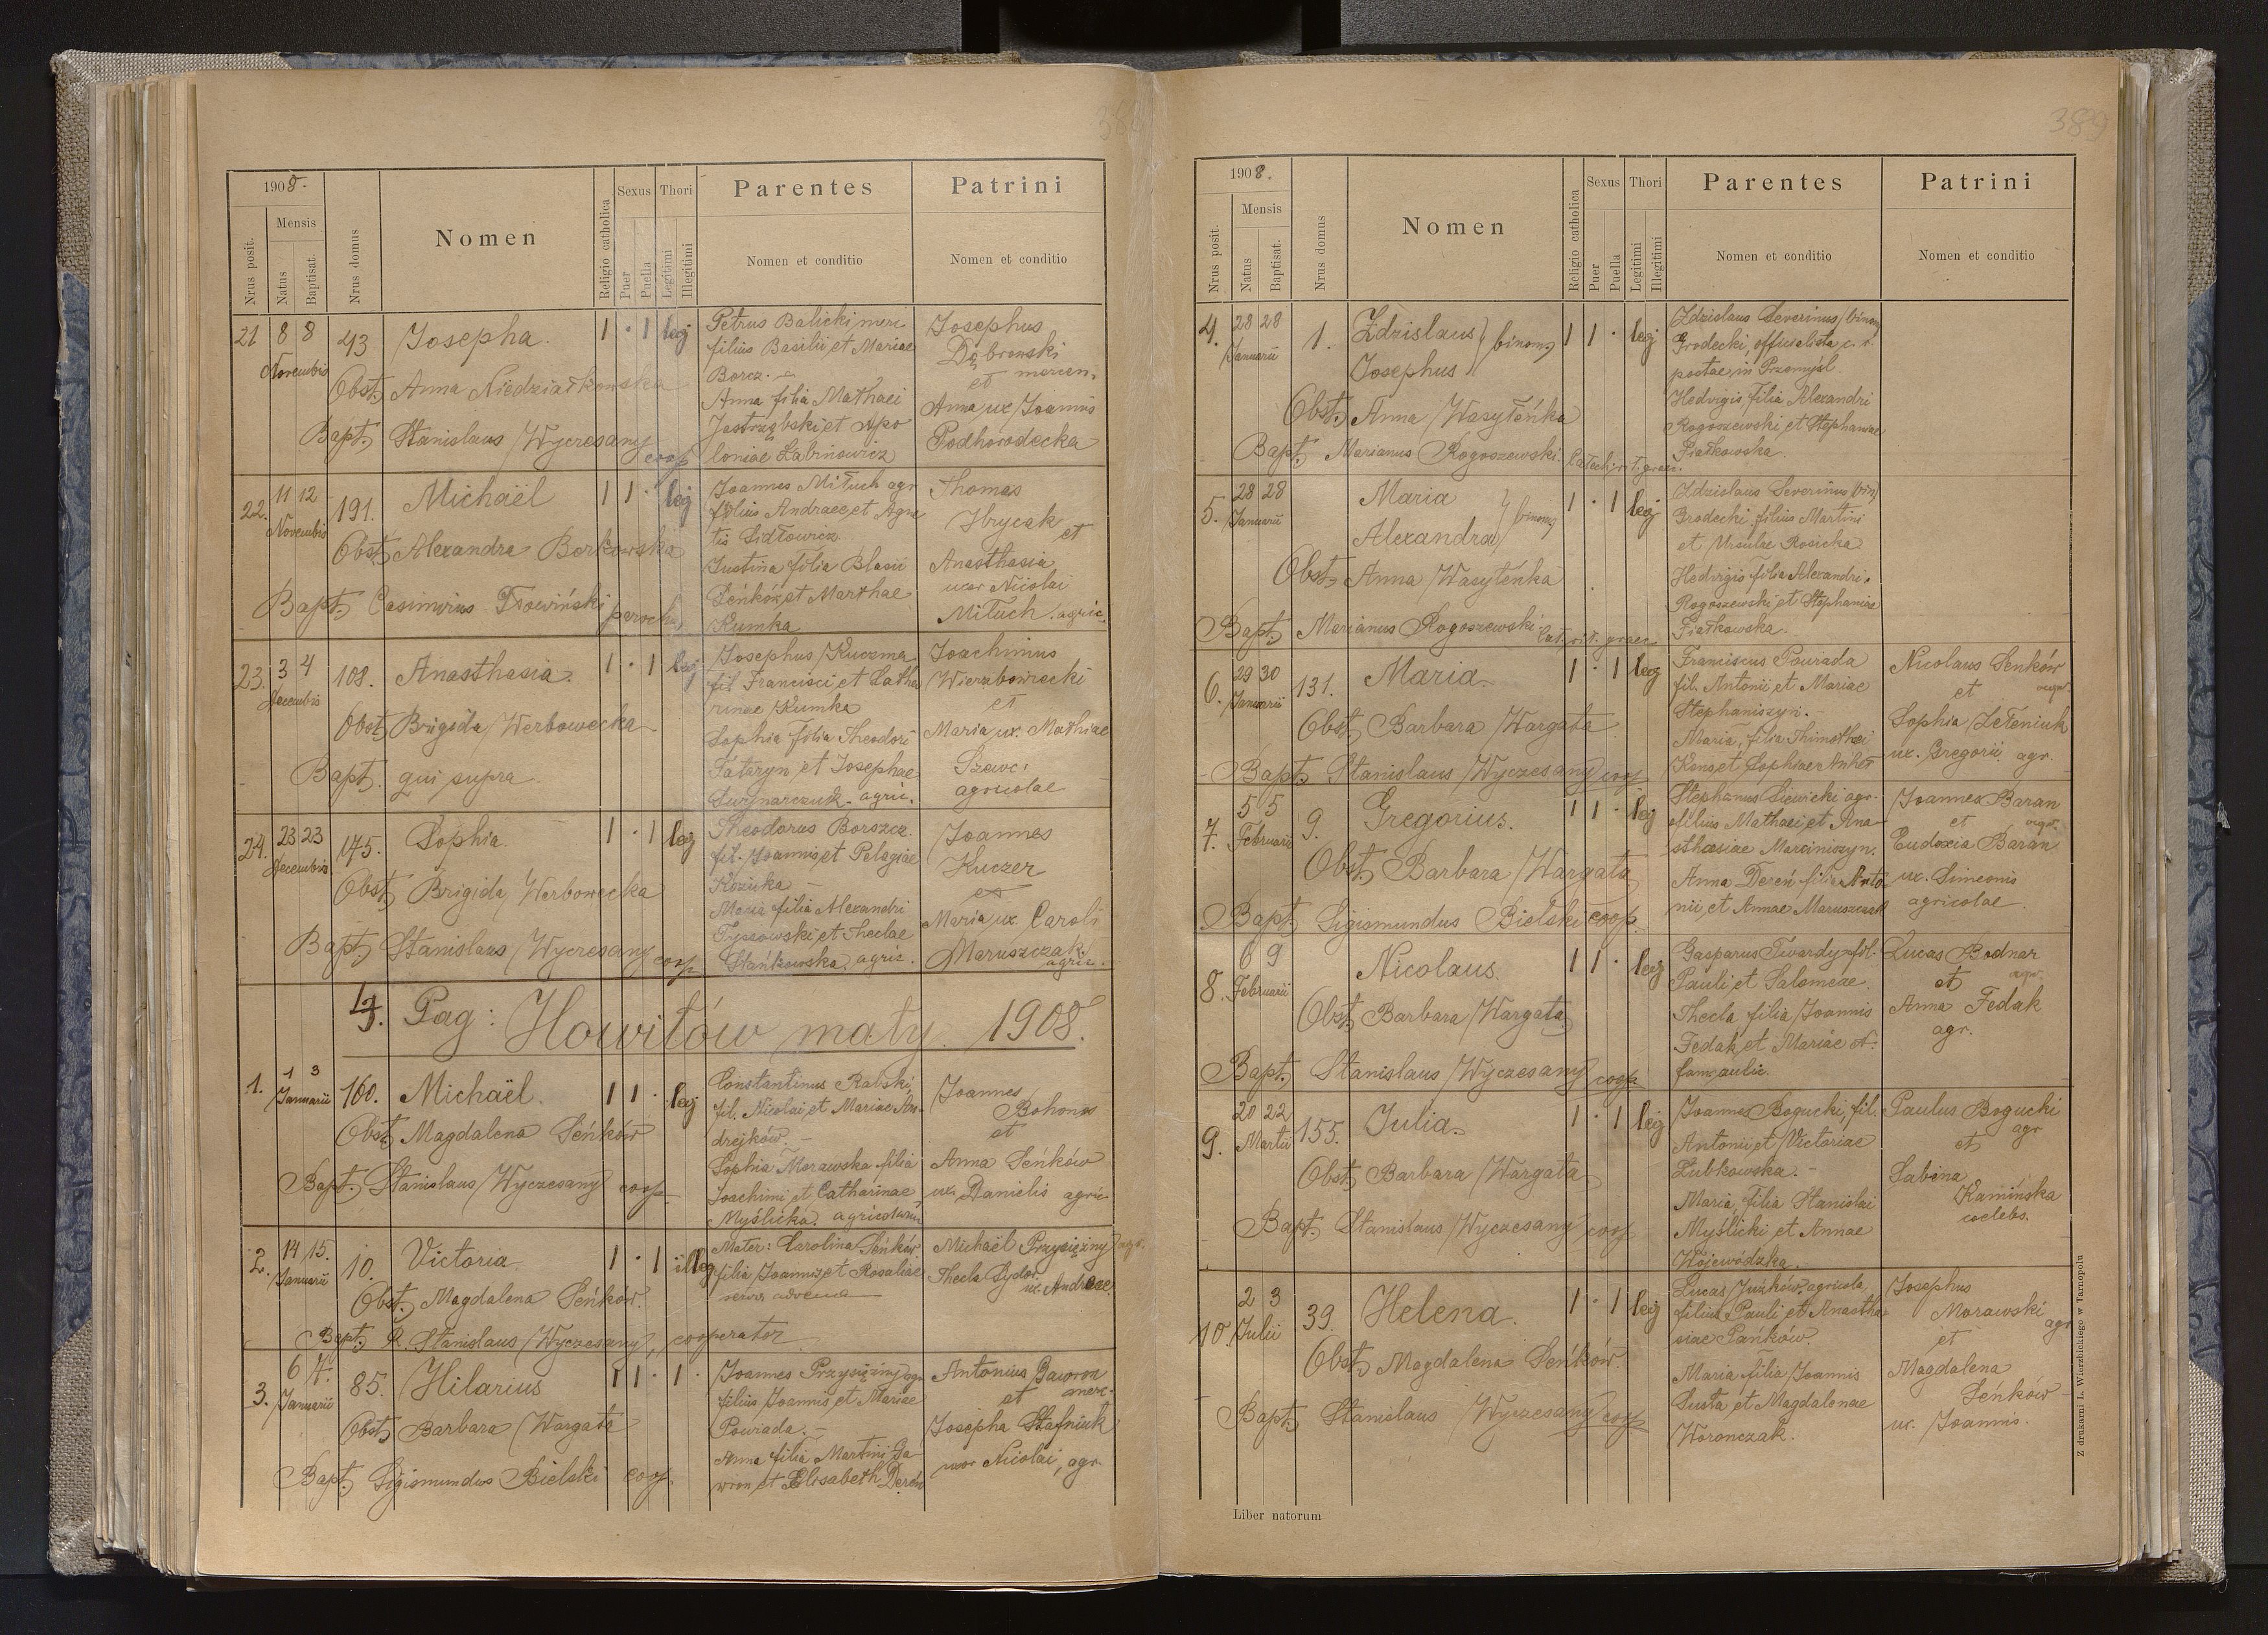 1908.
Nrus posit.
Mensis
Natus
Baptisat.
Nrus domus
Nomen
Religio catholica
Sexus
Puer
Puella
Thori
Legitimi
Illegitimi
Parentes
Nomen et conditio
Patrini
Nomen et conditio
21 8 8 43 Josepha. 1 · 1 leg
Novembris
Obst. Anna Niedziałkowska
Bapt. Stanislaus Wyczesany coop
Petrus Balicki merc
filius Basilii et Mariae
Borcz.
Anna filia Mathaei
Jastrzębski et Apo
loniae Łabinowicz
Josephus
Dąbrowski
et mercen.
Anna ux Joannis
Podhorodecka
22. 11 12 191. Michaël 1 1 · leg
Novembris
Obst. Alexandra Borkowska
Bapt. Casimirus Tłowiński paroch.
Joannes Mituch agr
filius Andreae et Agne
tis Sidłowicz.
Justina filia Blasii
Seńków et Marthae
Kumka
Thomas
Hrycak
et
Anasthasia
uxor Nicolai
Mituch. agric.
23. 3 4 108. Anasthasia. 1 · 1 leg
Decembris
Obst. Brigida Werbowecka
Bapt. qui supra.
Josephus Kuczma
fil Francisci et Catha
rinae Kumka
Sophia filia Theodori
Tataryn et Josephae
agric.
Joachimus
Wierzbowiecki
et
Maria ux. Mathiae
Szewc.
agricolae
24. 23 23 175. Sophia. 1 · 1 leg
Decembris
Obst. Brigida Werbowecka
Bapt. Stanislaus Wyczesany coop
Theodorus Borszcz.
fil. Joannis et Pelagiae
Kozicka
Maria filia Alexandri
Tyszowski et Theclae
Stańkowska. agric.
Joannes
Kuczer
et
Maria ux. Caroli
Maruszczak.
agric.
Pag: Howiłów mały. 1908.
1. 1 3 160. Michaël. 1 1 · leg
Januarii
Obst. Magdalena Seńków
Bapt. Stanislaus Wyczesany coop
Constantinus Rabski,
fil. Nicolai et Mariae An-
drejków.
Sophia Morawska filia
Joachimi et Catharinae
Myślicka. agricolarum
Joannes
Bohonos
et
Anna Seńków
ux. Danielis agric
2. 14 15. 10. Victoria. 1 · 1 illeg
Januarii
Obst. Magdalena Seńków.
Bapt. R. Stanislaus Wyczesany, cooperator
Mater: Carolina Seńków
filia Joannis et Rosaliae
advena
Michaël Przysiężny agr.
Thecla Sydor
ux. Andreae.
3. 6 7. 85. Hilarius 1 1 · 1 ·
Januarii
Obst. Barbara Wargata
Bapt. Sigismundus Bielski coop
Joannes Przysiężny agr
filius Joannis et Mariae
Pourada.
Anna filia Martini Ga
wron et Elisabeth Dereń
Antonius Gawron
et merc.
Josepha Stafniuk
uxor Nicolai, agr.
389
1908.
Nrus posit.
Mensis
Natus
Baptisat.
Nrus domus
Nomen
Religio catholica
Sexus
Puer
Puella
Thori
Legitimi
Illegitimi
Parentes
Nomen et conditio
Patrini
Nomen et conditio
4. 28 28 1. Zdzislaus binom 1 1 · leg
Januarii Josephus
Obst. Anna Wasyleńka
Bapt. Marianus Rogoszewski. Catech. rit. graec.
Zdzislaus Severinus binom
Grodecki, officialista c. r.
postae in Przemyśl.
Hedvigis filia Alexandri
Rogoszewski et Stephaniae
Fiałkowska.
5. 28 28 Maria binom 1 · 1 leg
Januarii Alexandra
Obst. Anna Wasyleńka
Bapt. Marianus Rogoszewski Cat. rit. graec
Zdzislaus Severinus (bin)
Grodecki filius Martini
et Ursulae Rosicka
Hedvigis filia Alexandri
Rogoszewski et Stephaniae
Fiałkowska.
6. 29 30 131. Maria. 1 · 1 leg
Januarii
Obst. Barbara Wargata
Bapt. Stanislaus Wyczesany coop
Franciscus Pourada
fil. Antonii et Mariae
Stephaniszyn.
Maria, filia Thimothei
Nicolaus Senków
et agr.
Sophia Zeleniuk
ux. Gregorii agr.
7. 5 5 9. Gregorius. 1 1 · leg
Februarii
Obst. Barbara Wargata
Bapt. Sigismundus Bielski coop.
Stephanus Siewicki agr.
filius Mathaei et Ana
sthasiae Marciniszyn.
Anna Dereń filia Anto
nii et Annae Maruszczak
Joannes Baran
et agr.
Eudoxia Baran
ux. Simeonis
agricolae
8. 6 9 Nicolaus. 1 1 · leg
Februarii
Obst. Barbara Wargata
Bapt. Stanislaus Wyczesany coop
Gasparus Twardy fil.
Pauli et Salomeae.
Thecla filia Joannis
Fedak et Mariae N.
fam. aulic.
Lucas Bodnar
et agr.
Anna Fedak
agr.
9. 20 22 155. Julia. 1 · 1 leg
Martii
Obst. Barbara Wargata
Bapt. Stanislaus Wyczesany coop
Joannes Bogucki, fil.
Antonii et Victoriae
Łubkowska.
Maria, filia Stanislai
Myślicki et Annae
Wojewódzka.
Paulus Bogucki
agr
et
Sabina
Kamińska
coelebs.
10 2 3 39. Helena. 1 · 1 leg
Julii
Obst. Magdalena Seńków.
Bapt. Stanislaus Wyczesany coop
Lucas Juzków, agricola,
filius Pauli et Anastha
siae Pańków.
Maria filia Joannis
Susta et Magdalenae
Worończak.
Josephus
Morawski
agr
et
Magdalena
Seńków
ux. Joannis.
Liber natorum
Z drukarni L. Wierzbickiego w Tarnopolu